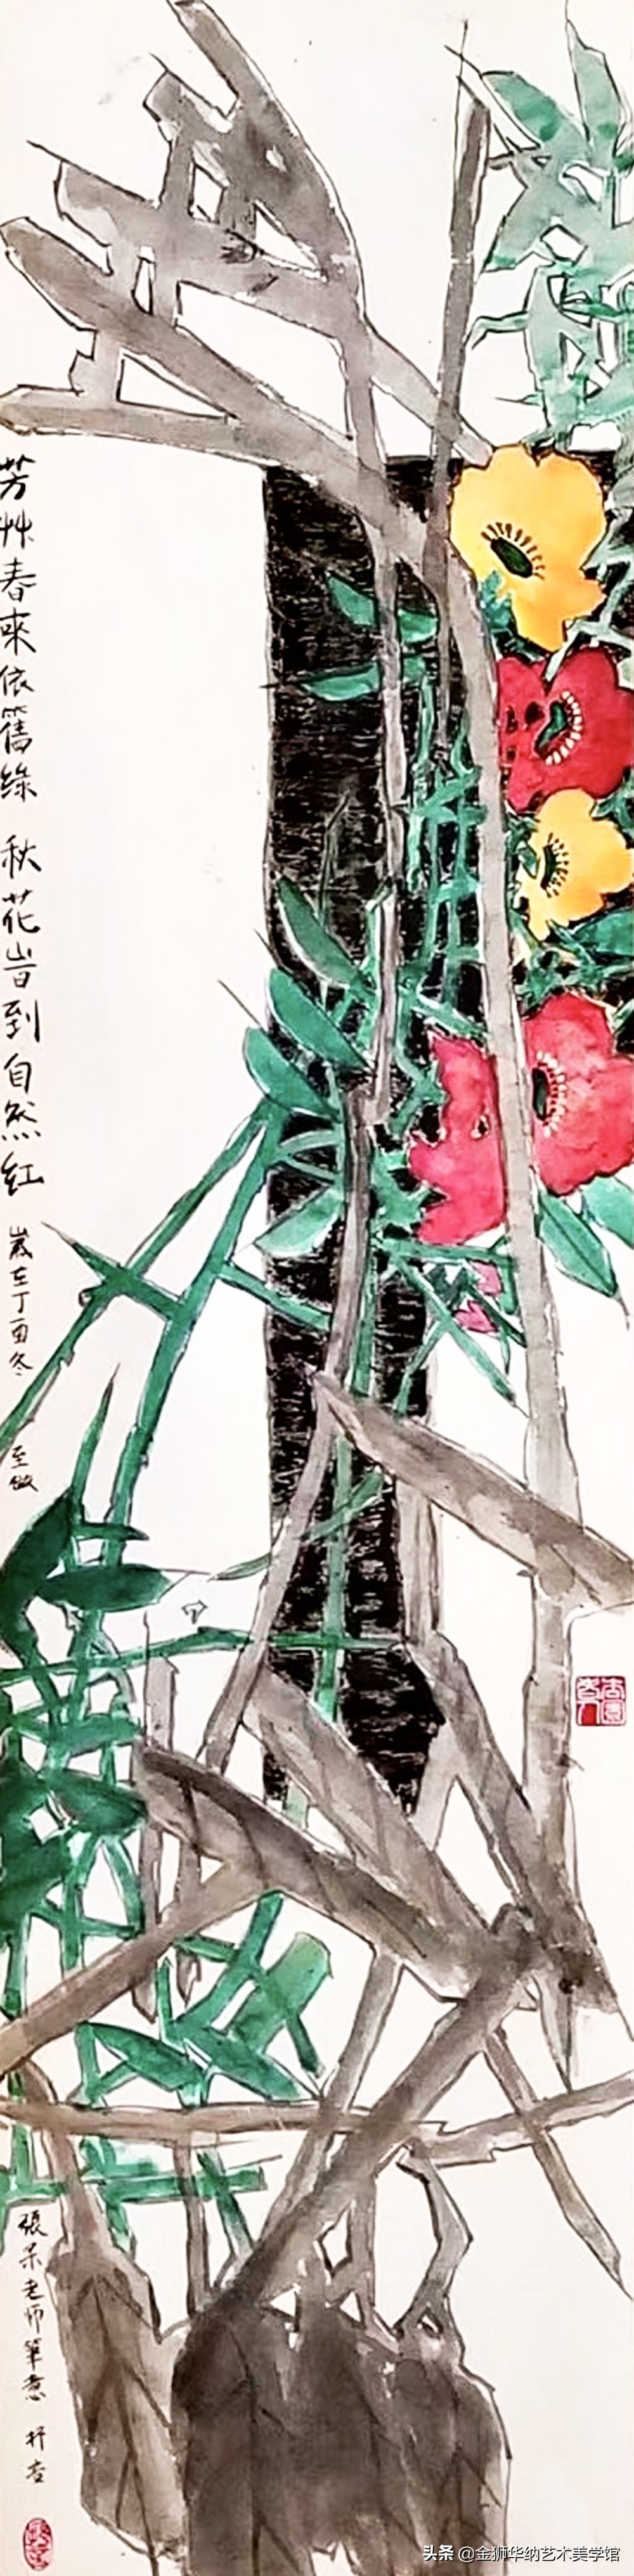 芳艸春來依舊綠 秋花旹到自然紅
歲在丁酉冬 至倣
張朵老师筆意 杼杏
杏園
头条 @金狮华纳艺术美学馆